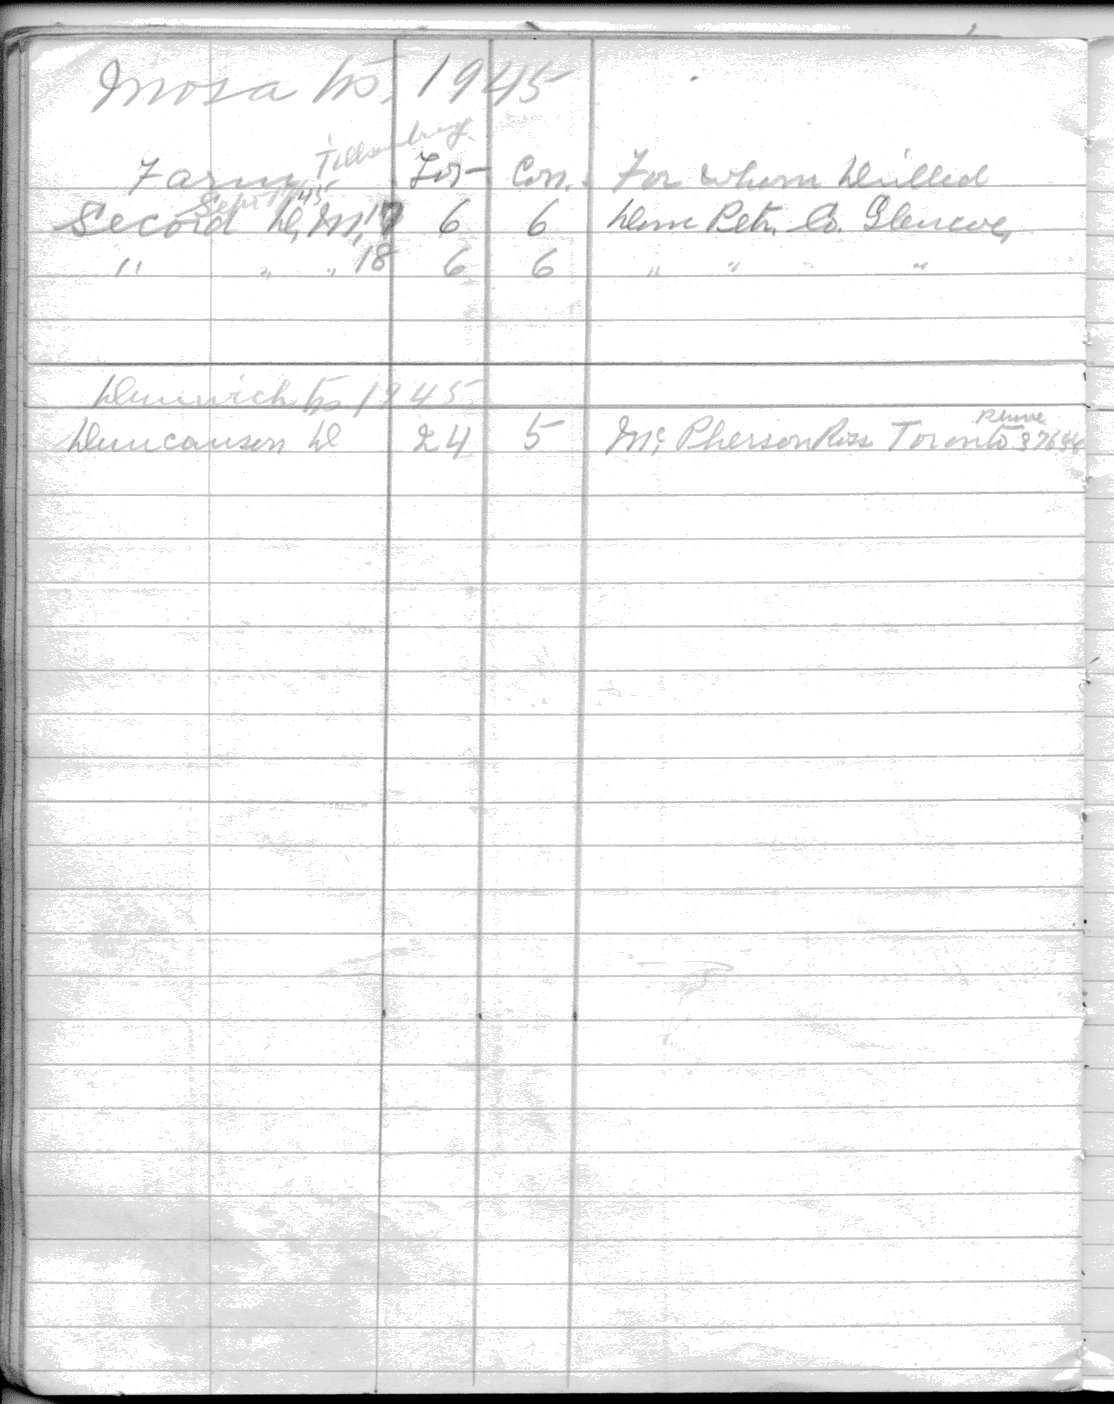 Mosa Tp. 1945
Tillsonburg
Farm Lot Con. For whom Drilled
Sept 45
Secord D, M, 17 6 6 Dom Pet. Co. Glencoe,
" " " 18 6 6 " " " "
Dunwich Tp 1945
Phone
Duncanson D 24 5 Mc Pherson Ross Toronto